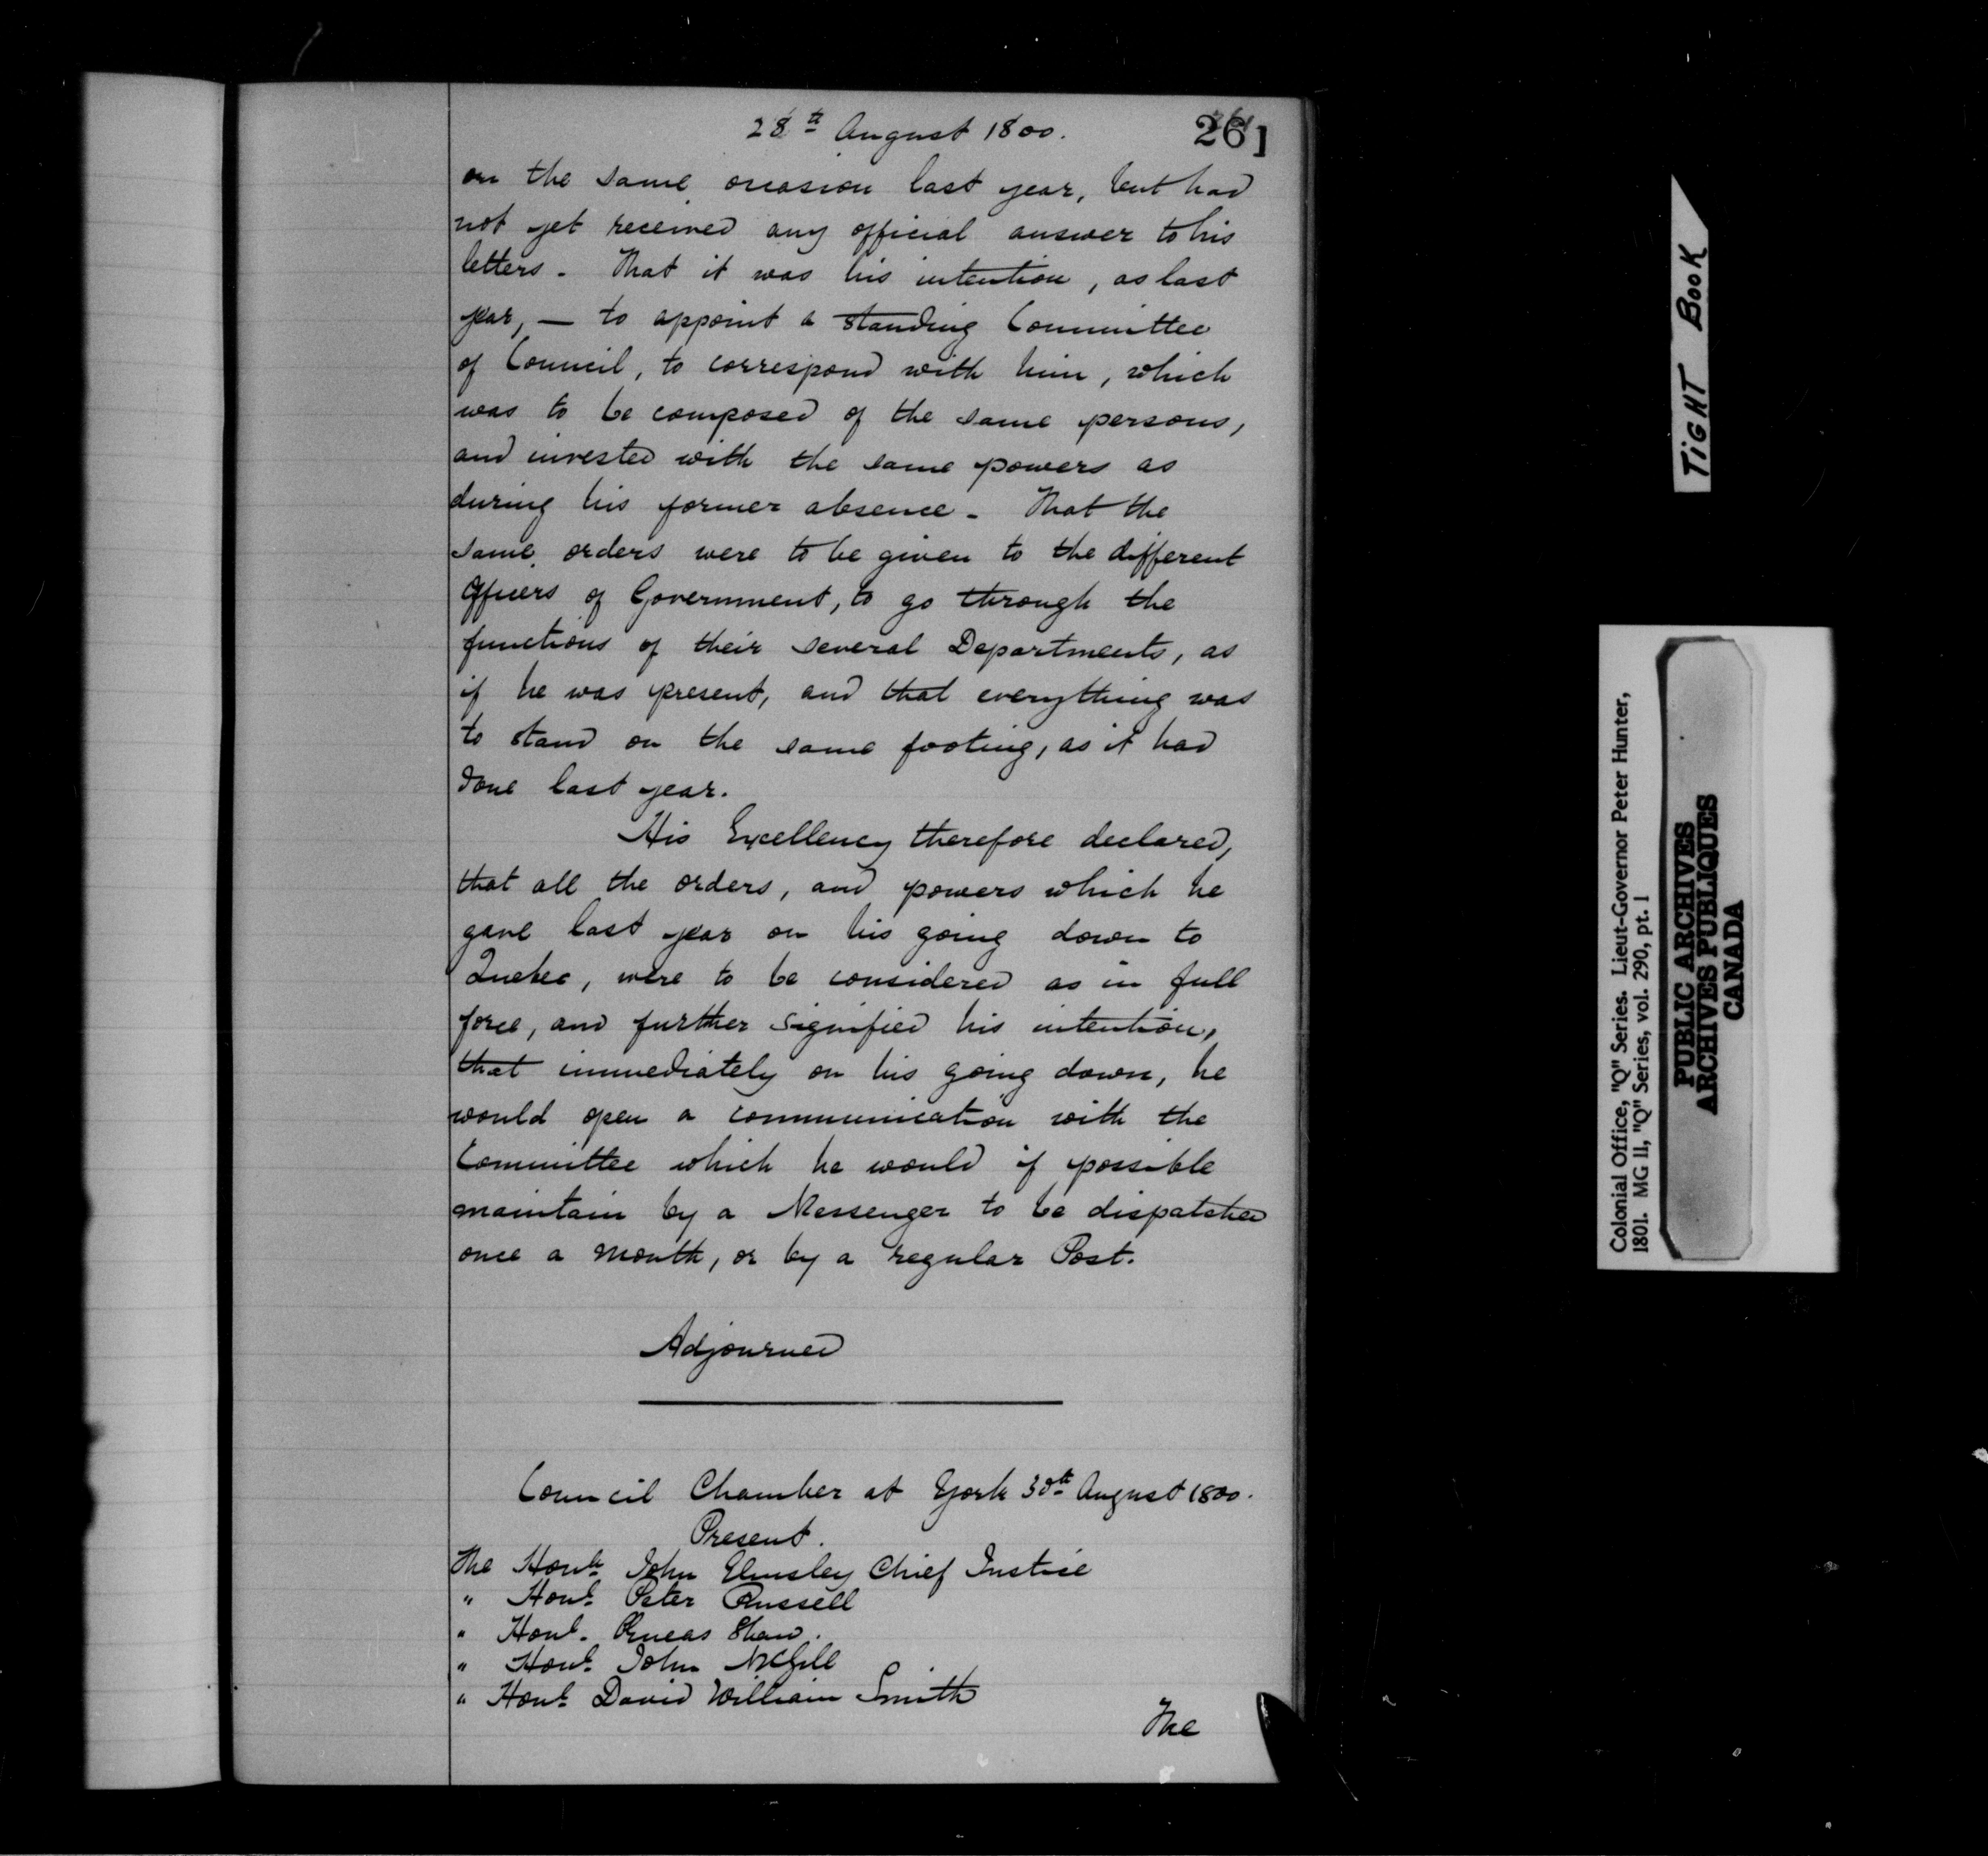 28th August 1800.
261
on the same occasion last year, but had
not yet received any official answer to his
letters. That it was his intention, as last
year, — to appoint a standing Committee
of Council, to correspond with him, which
was to be composed of the same persons,
and invested with the same powers as
during his former absence. That the
same orders were to be given to the different
Officers of Government, to go through the
functions of their several Departments, as
if he was present, and that everything was
to stand on the same footing, as it had
done last year.
His Excellency therefore declared,
that all the orders, and powers which he
gave last year on his going down to
Quebec, were to be considered as in full
force, and further signified his intention,
that immediately on his going down, he
would open a communication with the
Committee which he would if possible
maintain by a Messenger to be dispatched
once a month, or by a regular Post.
Adjourned
Council Chamber at York 30th August 1800.
Present.
The Honle John Elmsley Chief Justice
" Honl. Peter Russell
" Honl. Æneas Shaw.
" Honl. John McGill
" Honl. David William Smith
The
TIGHT BOOK
Colonial Office, "Q" Series. Lieut-Governor Peter Hunter,
1801. MG 11, "Q" Series, vol. 290, pt. 1
PUBLIC ARCHIVES
ARCHIVES PUBLIQUES
CANADA